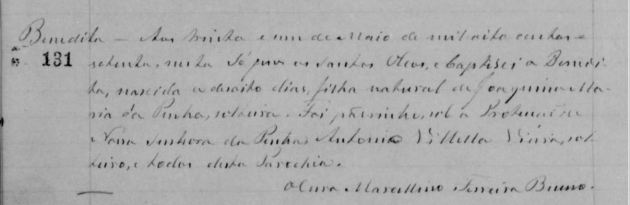 Benedita - Aos trinta e um de Maio de mil oito centos
131 setenta, nesta Sé pus os santos Oleos, e baptisei a Benedi-
ta, nascida a desoito dias, filha natural de Joaquina Ma-
ria da Penha, solteira. Foi padrinho, sob a Protecção de
Nossa Senhora da Penha, Antonio Villella Vieira, sol-
teiro, e todos desta Parochia.
O Cura Marcellino Ferreira Bueno.